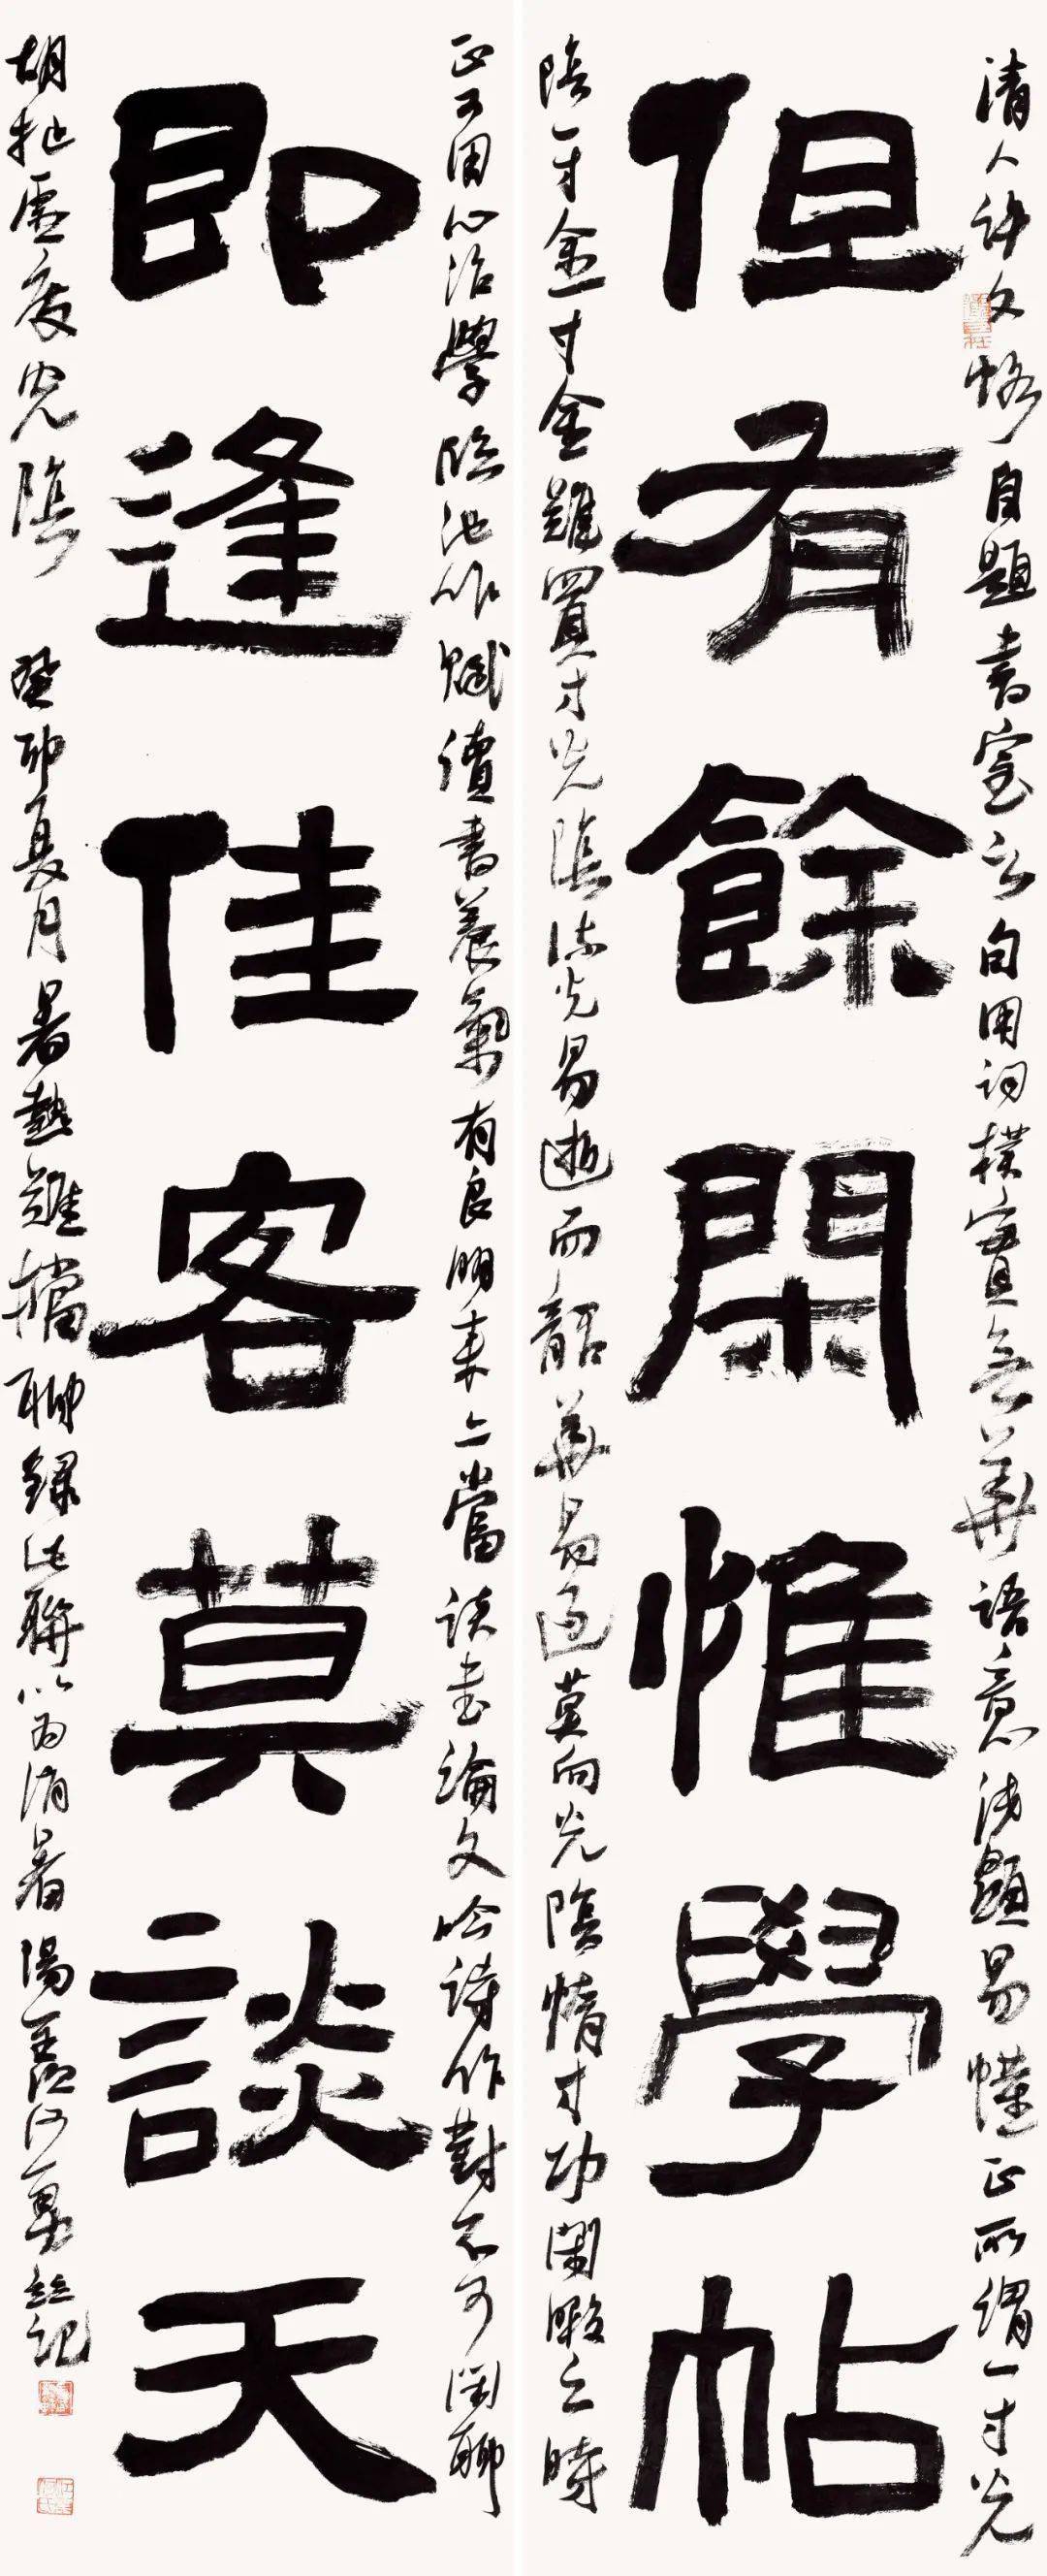 但有餘閑惟學帖
即逢佳客莫談天
清人許文恪自題書室之句用詞樸實無華語意淺顯易懂正所謂一寸光
陰一寸金寸金難買寸光陰流光易逝而韶華易逝莫向光陰惰寸功閑暇之時
正可用心治學臨池作賦讀書養氣有良朋來亦當談書論文吟詩作對不可閑聊
胡扯虛度光陰 癸卯夏月暑熱難擋聊錄此聯以為消暑湯